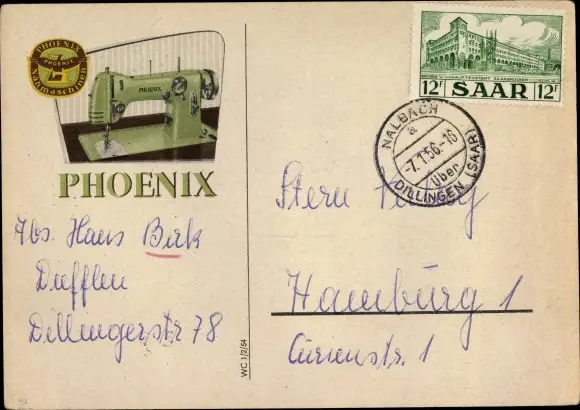 PHOENIX
PHOENIX
Nähmaschinen
PHOENIX
PHOENIX
Abs. Hans Birk
Diefflen
Dillingerstr 78
WC 1/2/54
12F SAAR 12F
NALBACH
a
-7.1.56.-16
Über
DILLINGEN (SAAR)
Stern
Hamburg 1
Curienstr. 1